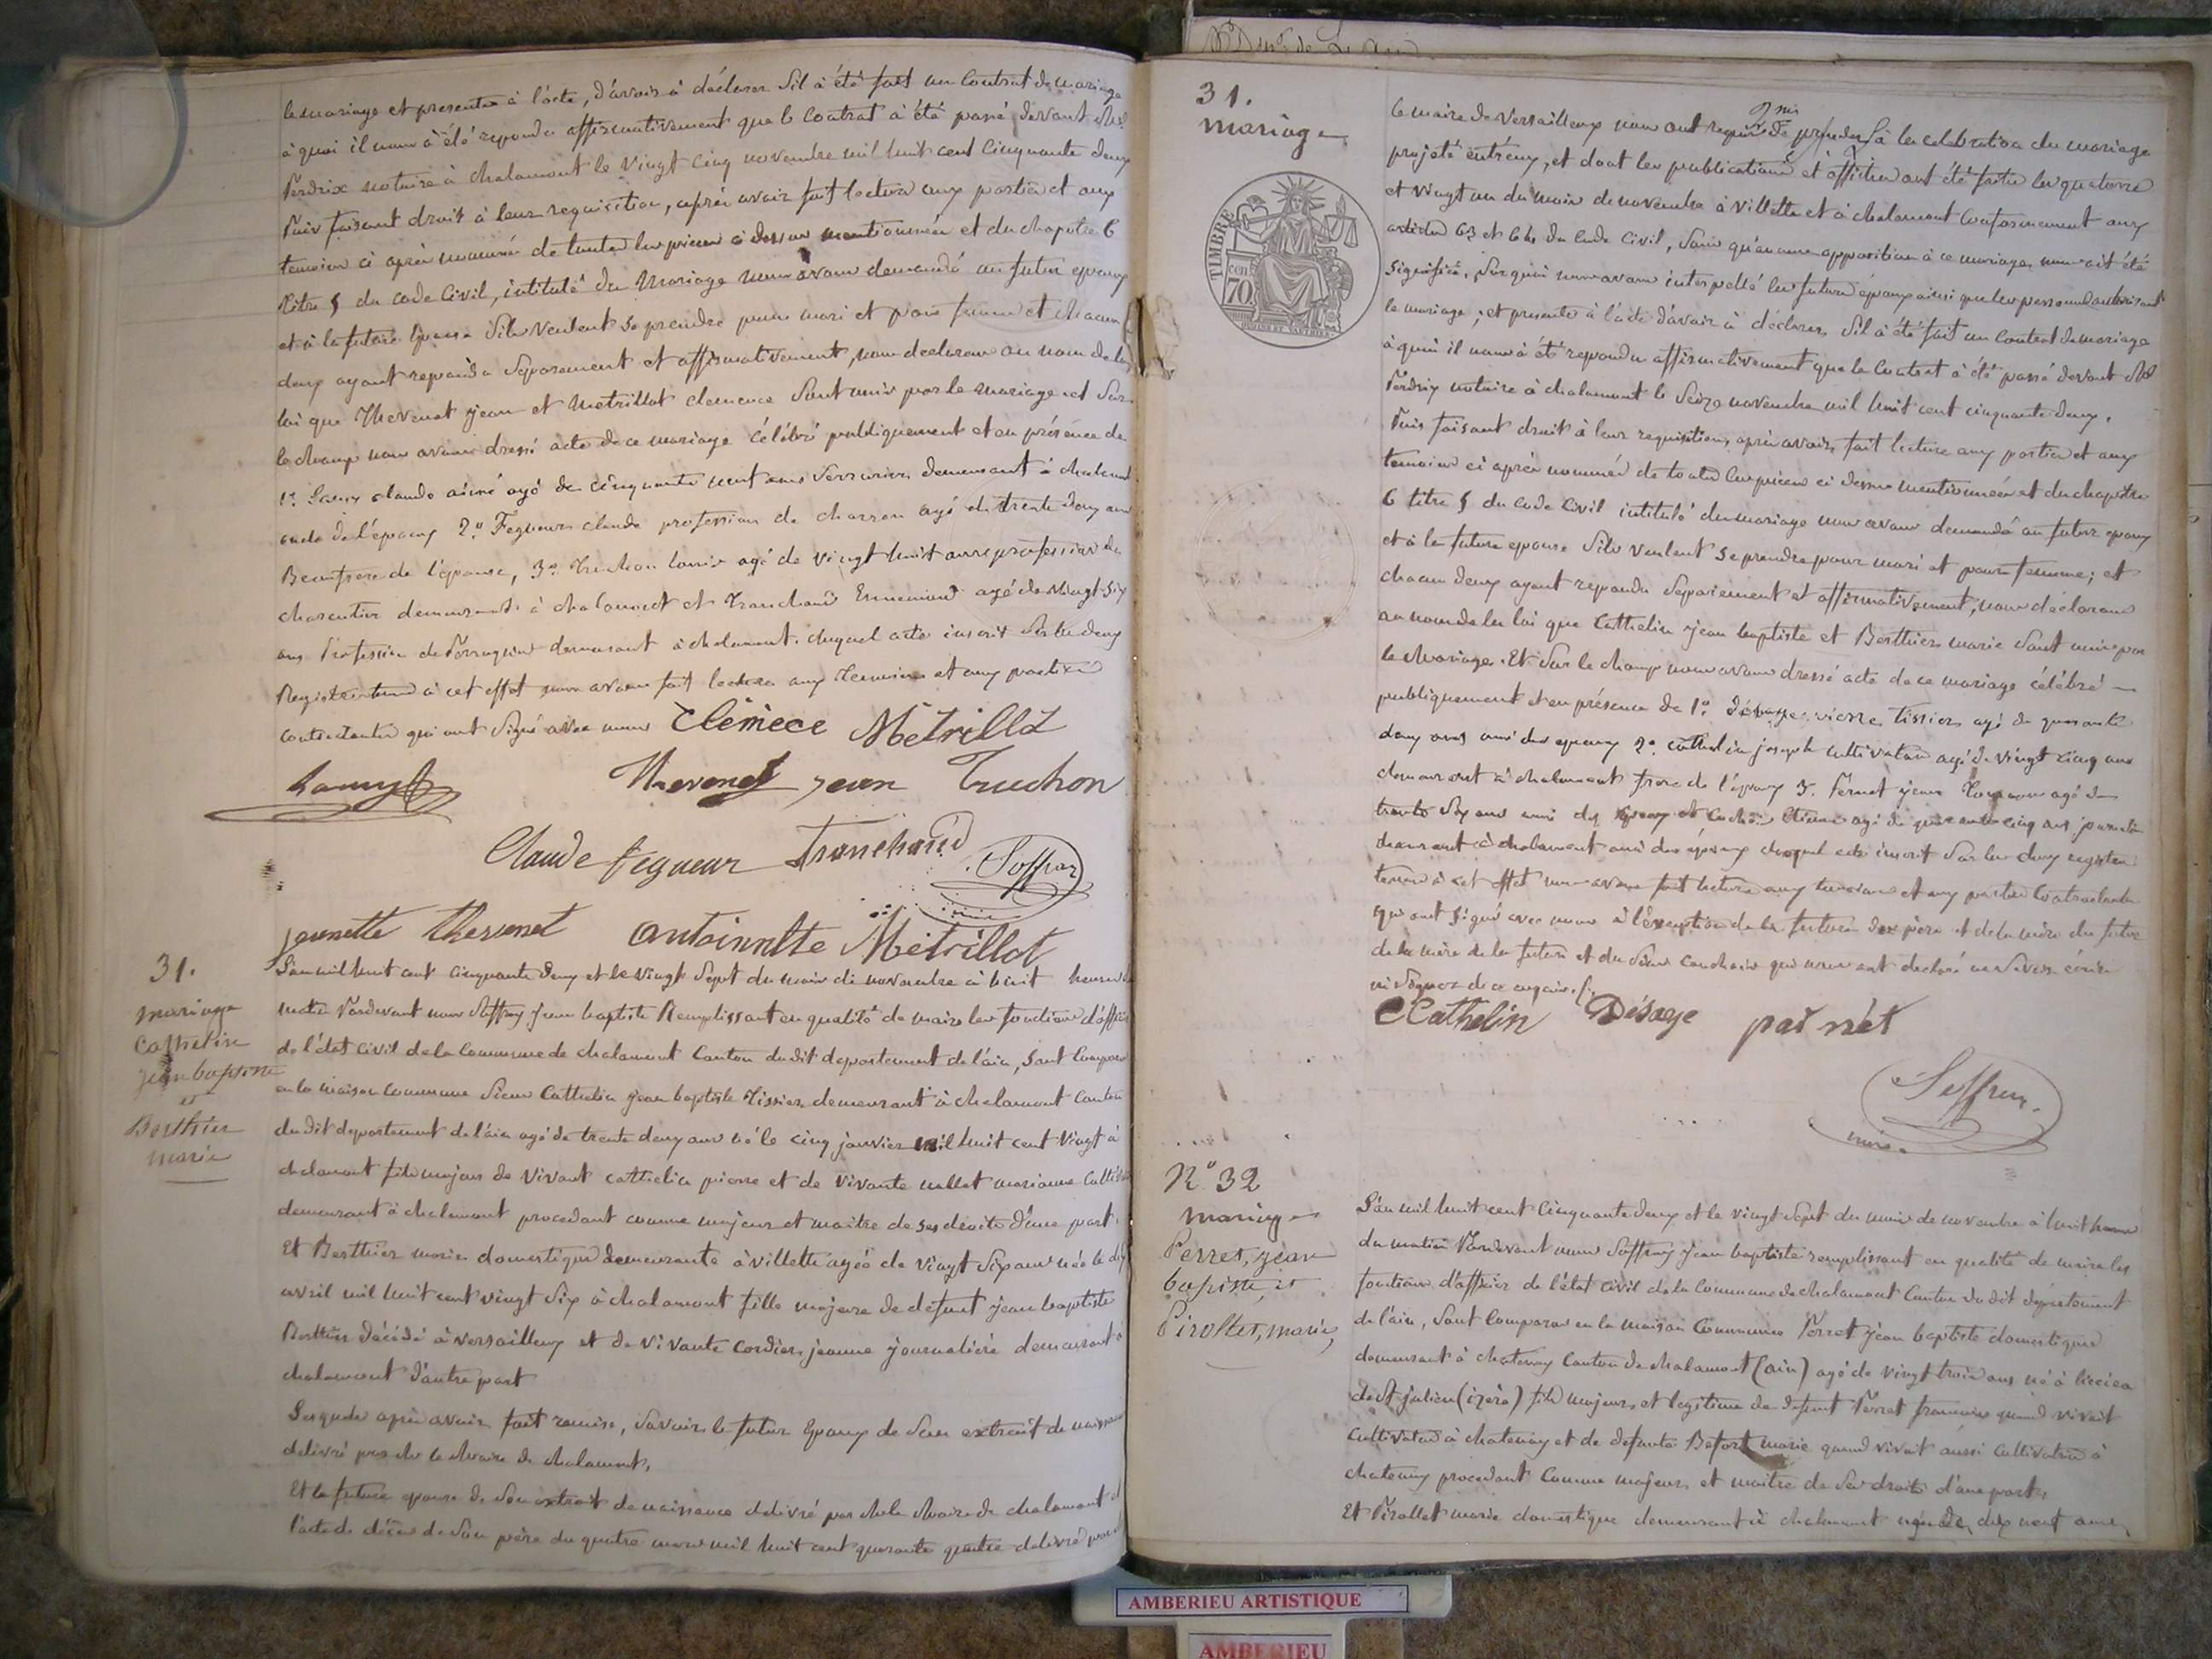 le mariage et presente à l'acte, d'avoir à déclarer s'il à été fait un Contrat de mariage
à quoi il nous à été repondu affirmativement que le Contrat à été passé devant Me
Perdrix notaire à chalamont le vingt cinq novembre mil huit cent cinquante deux
Puis faisant droit à leur requisition, après avoir fait lecture aux parties et aux
temoins ci après nommés de toutes les pièces ci dessus mentionnées et du chapitre 6
titre 5 du code Civil, intitulé du Mariage nous avons demandé au futur epoux
et à la future Epouse s'ils veulent se prendre pour mari et pour femme et chacun
deux ayant repondu séparement et affirmativement, nous declarons au nom de la
loi que Thevenet jean et Metrillot clemence sont unis par le mariage et sur
le champ nous avons dressé acte de ce mariage célébré publiquement et en présence de
1º claude ainé agé de cinquante neuf ans serrurier demeurant à chalamont
oncle de l'époux 2º Fegueur claude profession de charron agé de trente deux ans
Beaufrere de l'épouse, 3º Truchon louis agé de vingt huit ans profession de
charcutier demeurant à chalamont et Tranchand Ennemond agé de vingt six
ans Profession de Perruquier demeurant à chalamont. duquel acte inscrit sur les deux
Registres tenus à cet effet nous avons fait lecture aux temoins et aux parties
contractantes qui ont signé avec nous Clémece Métrillot
Thevenet jean Truchon
Claude fegueur Tranchand Soffray
jeanette thevenet antoinette Métrillot
31.
mariage
Cathelin
jean baptiste
et
Berthier
marie
L'an mil huit cent cinquante deux et le vingt sept du mois de novembre à huit heures du
matin Pardevant nous Soffray jean baptiste Remplissant en qualité de maire les fonctions d'officier
de l'état civil de la Commune de chalamont Canton dudit departement de l'ain, sont Comparus
en la maison Commune sieur Cathelin jean baptiste Tissier demeurant à chalamont Canton
dudit departement de l'ain agé de trente deux ans né le cinq janvier mil huit cent vingt à
chalamont fils majeur de vivant cathelin pierre et de vivante marianne
demeurant à chalamont procedant comme majeur et maitre de ses droits d'une part.
Et Berthier marie domestique demeurante à villette agée de vingt six ans née le dix
avril mil huit cent vingt six à chalamont fille majeure de defunt jean baptiste
Berthier décédé à versailleux et de vivante Cordier jeanne journalière demeurant à
chalamont d'autre part
Lesquels après avoir fait remise, savoir le futur Epoux de son extrait de naissance
delivré par Mr le Maire de chalamont,
Et la future epouse de son extrait de naissance delivré par Mr le Maire de chalamont et
l'acte de décès de son père du quatre mars mil huit cent quarante quatre delivré par
31.
mariage
TIMBRE
70
le maire de versailleux nous ont requis de proceder à la celebration du mariage
projeté entr'eux, et dont les publications et affiches ont été faites les quatorze
et vingt un du mois de novembre à villette et à chalamont Conformement aux
articles 63 et 64 du Code Civil, sans qu'aucune opposition à ce mariage nous ait été
signifiée. Sur quoi nous avons interpellé les futurs époux ainsi que les personnes autorisant
le mariage, et presentes à l'acte d'avoir à déclarer s'il à été fait un Contrat de mariage
à quoi il nous à été repondu affirmativement que le Contrat à été passé devant Me
Perdrix notaire à chalamont le seize novembre mil huit cent cinquante deux.
Puis faisant droit à leur requisitions après avoir fait lecture aux parties et aux
temoins ci après nommés de toutes les pièces ci dessus mentionnées et du chapitre
6 titre 5 du code Civil intitulé du mariage nous avons demandé au futur epoux
et à la future epouse s'ils veulent se prendre pour mari et pour femme; et
chacun deux ayant repondu séparement et affirmativement, nous déclarons
au nom de la loi que Cathelin jean baptiste et Berthier marie sont unis par
le Mariage. Et sur le champ nous avons dressé acte de ce mariage célébré
publiquement et en présence de 1º Désage pierre tissier agé de quarante
deux ans ami des epoux 2º cathelin joseph cultivateur agé de vingt cinq ans
demeurant à chalamont frere de l'époux 3º Pernet jean agé de
trente six ans ami des epoux et etienne agé de quarante cinq ans
demeurant à chalamont ami des époux duquel acte inscrit sur les deux registres
tenus à cet effet nous avons fait lecture aux temoins et aux parties Contractantes
qui ont signé avec nous à l'exception de la future du père et de la mère du futur
de la mère de la future et du sieur qui nous ont declaré ne savoir écrire
ni signer de ce enquis.
Cathelin Désage
Soffray
maire
Nº 32
mariage
Perret, jean
baptiste, et
Pirollet, marie,
L'an mil huit cent Cinquante deux et le vingt sept du mois de novembre à huit heures
du matin Pardevant nous Soffray jean baptiste remplissant en qualité de maire les
fonctions d'officier de l'état civil de la Commune de chalamont Canton du dit departement
de l'ain, sont Comparus en la maison Commune Perret jean baptiste domestique
demeurant à chatenay Canton de chalamont (ain) agé de vingt trois ans né à
de St julien (izère) fils majeur et legitime de defunt Perret francois quand vivait
Cultivateur à chatenay et de defunte Befort marie quand vivait aussi Cultivatrice à
chatenay procedant Comme majeur et maitre de ses droits d'une part,
Et Pirollet marie domestique demeurant à chalamont agée de dix neuf ans,
AMBERIEU ARTISTIQUE
AMBERIEU